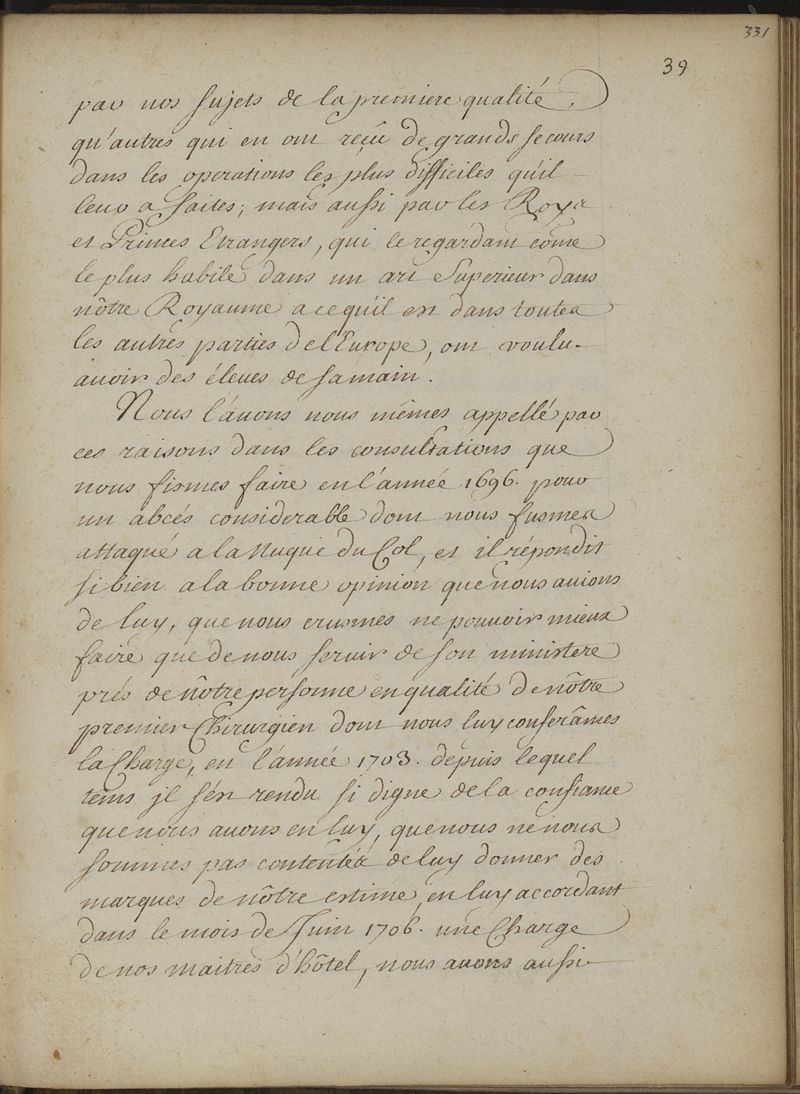 331
39
par nos sujets de la premiere qualité,
qu'autres qui en ont reçû de grands secours
dans les operations les plus difficiles qu'il
leur a faites; mais aussi par les Roys
et Princes Etrangers, qui le regardant come
le plus habile dans un art Superieur dans
nôtre Royaume a ce qu'il est dans toutes
les autres parties de l'Europe, ont voulu
auoir des éleues de sa main.
Nous l'auons nous mêmes appellé par
ces raisons dans les consultations que
nous fismes faire en l'année 1696. pour
un abcés considerable dont nous fusmes
attaqué a la Nuque du Col, et il répondit
si bien a la bonne opinion que nous auions
de luy, que nous crusmes ne pouuoir mieux
faire que de nous seruir de son ministere
prés de nôtre personne en qualité de nôtre
premier Chirurgien dont nous luy conferâmes
la Charge, en l'année 1703. depuis lequel
tems jl s'est rendu si digne de la confiance
que nous auons en luy, que nous ne nous
sommes pas contentéz de luy donner des
marques de nôtre estime, en luy accordant
dans le mois de Juin 1706. une Charge
de nos maitres d'hôtel, nous auons aussi